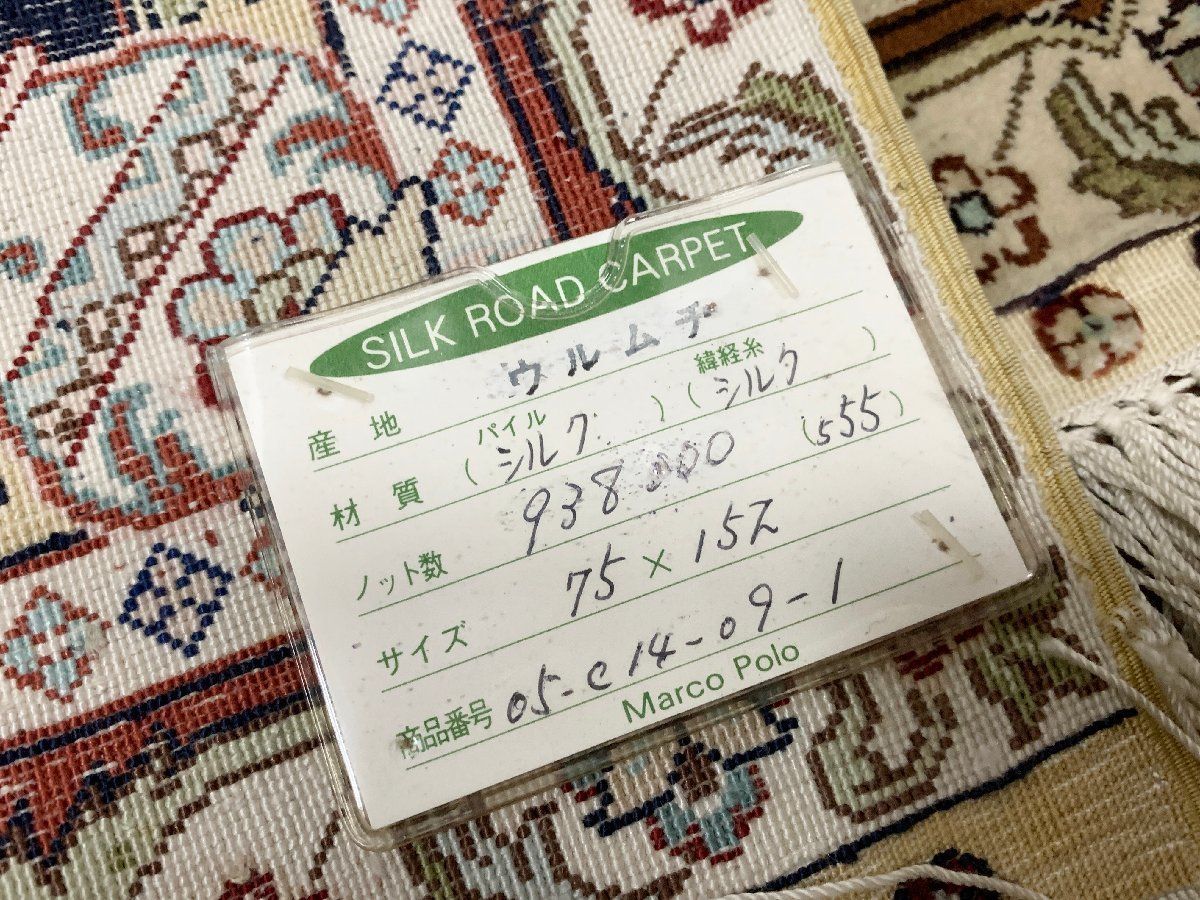 SILK ROAD CARPET
産地 ウルムチ
材質 (パイル シルク) (緯経糸 シルク)
ノット数 938000 (555)
サイズ 75×152
商品番号 05-C14-09-1
Marco Polo